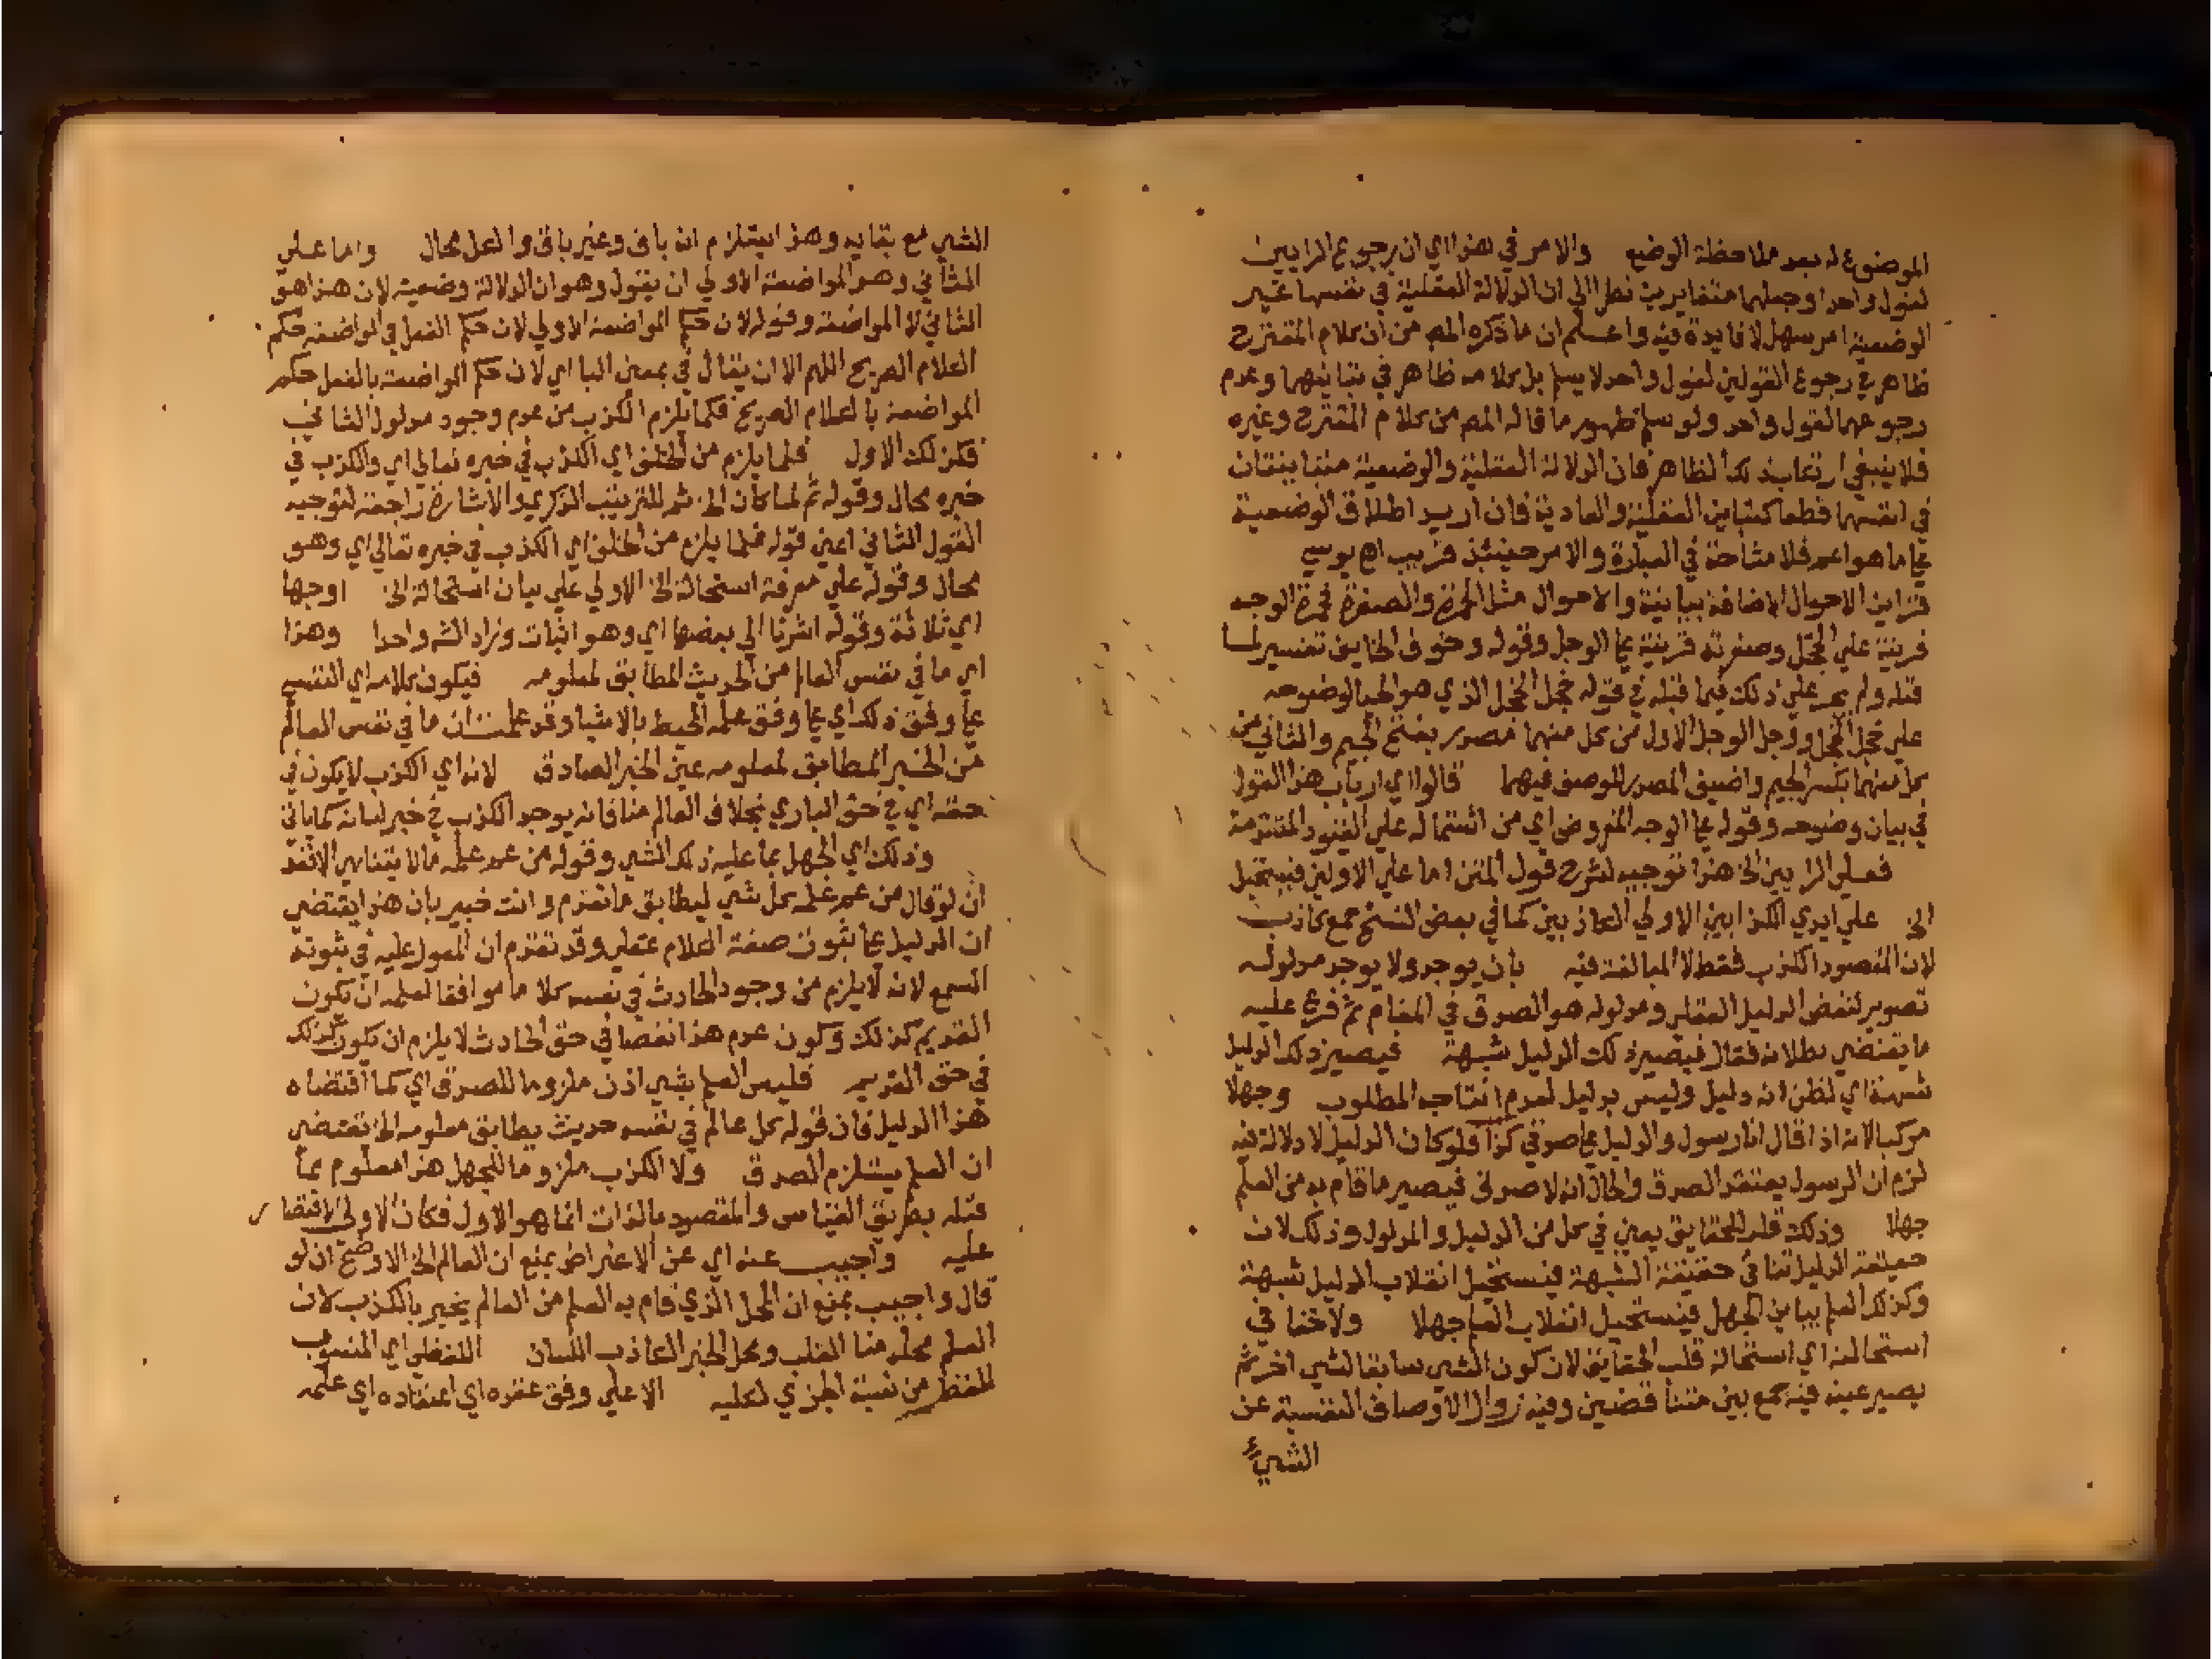 الموضوع له بعد ملاحظة الوضع والامر في هذا اي ان رجوع الرايين
لقول واحد او جعلهما متغايرين نظرا الي ان الدلالة العقلية في نفسها غير
الوضعية امر سهل لا فايدة فيه واعلم ان ما ذكره المص من ان كلام المقترح
ظاهر في رجوع القولين لقول واحد لا يسلم بل كلامه ظاهر في تباينهما وعدم
رجوعهما لقول واحد ولو سلم ظهور ما قاله المص من كلام المقترح وغيره
فلا ينبغي ارتكاب ذلك الظاهر فان الدلالة العقلية والوضعية متباينتان
في انفسهما قطعا كتباين العقلية والعادية فان اريد اطلاق الوضعية
علي ما هو اعم فلا مشاحة في العبارة والامر حينئذ قريب اه يوسي
قراين الاحوال الاضافة بيانية والاحوال مثل الحمرة والصفرة فحمرة الوجه
قرينة علي الخجل وصفرته قرينة علي الوجل وقوله وخوف الخايف تفسير لما
قبله ولم يجر علي ذلك فيما قبله في قوله خجل الخجل الذي هو
علي خجل الخجل ووجل الوجل الاول من كل منهما مصدر بفتح الجيم والثاني من
كل منهما بكسر الجيم واضيف المصدر للوصف فيهما قالوا اي ارباب هذا القول
في بيان وضوحه وقوله علي الوجه المفروض اي من اشتماله علي القيود المتقدمة
فعلي الرايين الخ هذا توجيه لشرح قول المتن اما علي الاولين فيستحيل
الخ علي ايدي الكذابين الاولي الكاذبين كما في بعض النسخ جمع كاذب
لان المقصود الكذب فقط لا المبالغة فيه بان يوجد ولا يوجد مدلوله
تصوير لنقض الدليل العقلي ومدلوله هو الصدق في المقام ثم فرع عليه
ما يقتضي بطلانه فقال فيصير ذلك الدليل شبهة فيصير ذلك الدليل
شبهة اي لظن انه دليل وليس بدليل لعدم انتاجه المطلوب وجهلا
مركبا لانه اذا قال انا رسول والدليل علي صدقي كذا فلو كان الدليل لا دلالة فيه
لزم ان الرسول يعتقد الصدق والحال انه لا صدق فيصير ما قام به من العلم
جهلا وذلك قلب الحقايق يعني في كل من الدليل والمدلول وذلك لان
حقيقة الدليل تنافي حقيقة الشبهة فيستحيل انقلاب الدليل شبهة
وكذلك العلم يباين الجهل فيستحيل انقلاب العلم جهلا ولا خفا في
استحالته اي استحالة قلب الحقايق لان كون الشي سابقا لشي اخر ثم
يصير عينه فيه جمع بين متناقضين وفيه زوال الاوصاف النفسية عن
الشيء
الشي مع بقايه وهذا يستلزم انه باق وغير باق والكل محال واما علي
الثاني وهو المواضعة الاولي ان يقول وهو ان الدلالة وضعية لان هذا هو
الثاني لا المواضعة وقوله لان حكم المواضعة الاولي لان حكم الفعل في المواضعة حكم
الكلام الصريح اللهم الا ان يقال في بمعني البا اي لان حكم المواضعة بالفعل حكم
المواضعة بالكلام الصريح فكما يلزم الكذب من عدم وجود مدلول الثاني
فكذلك الاول فلما يلزم من الخلف اي الكذب في خبره تعالي اي والكذب في
خبره محال وقوله ثم لما كان الخ ثم للترتيب الذكري والاشارة راجعة لتوجيه
القول الثاني اعني قوله فلما يلزم من الخلف اي الكذب في خبره تعالي اي وهو
محال وقوله علي معرفة استحالة الخ الاولي علي بيان استحالة الخ اوجها
اي ثلاثة وقوله اشرنا الي بعضها اي وهو اثبات وزاد الش واحدا وهذا
اي ما في نفس العالم من الحديث المطابق لمعلومه فيكون كلامه اي النفسي
علي وفق ذلك اي علي وفق علمه المحيط بالاشيا وقد علمت ان ما في نفس العالم
من الخبر المطابق لمعلومه عين الخبر الصادق لانه اي الكذب لا يكون في
حقه اي في حق الباري بخلاف العالم منا فانه يوجد الكذب في خبر لسانه كما ياتي
وذلك اي الجهل بما عليه ذلك الشي وقوله من عم علمه ما لا يتناهي الاقعد
ان لو قال من عم علمه كل شي ليطابق ما تقدم وانت خبير بان هذا يقتضي
ان الدليل علي ثبوت صفة الكلام عقلي وقد تقدم ان المعول عليه في ثبوته
السمع لانه لا يلزم من وجود الحادث في نفسه كلاما موافقا لعلمه ان يكون
القديم كذلك وكون عدم هذا نقصا في حق الحادث لا يلزم ان يكون كذلك
في حق القديم فليس العلم بشي اذن ملزوما للصدق اي كما اقتضاه
هذا الدليل فان قوله كل عالم في نفسه حديث يطابق معلومه الخ يقتضي
ان العلم يستلزم الصدق ولا الكذب ملزوما للجهل هذا معلوم مما
قبله بطريق القياس والمقصود بالذات انما هو الاول فكان الاولي الاقتصار
عليه واجيب عنه اي عن الاعتراض بمنع ان العالم الخ الاوضح ان لو
قال واجيب بمنع ان المحل الذي قام به العلم من العالم يخبر بالكذب لان
العلم محله منا القلب ومحل الخبر الكاذب اللسان اللفظي اي المنسوب
للفظ من نسبة الجزئي لكليه الا علي وفق عقده اي اعتقاده اي علمه